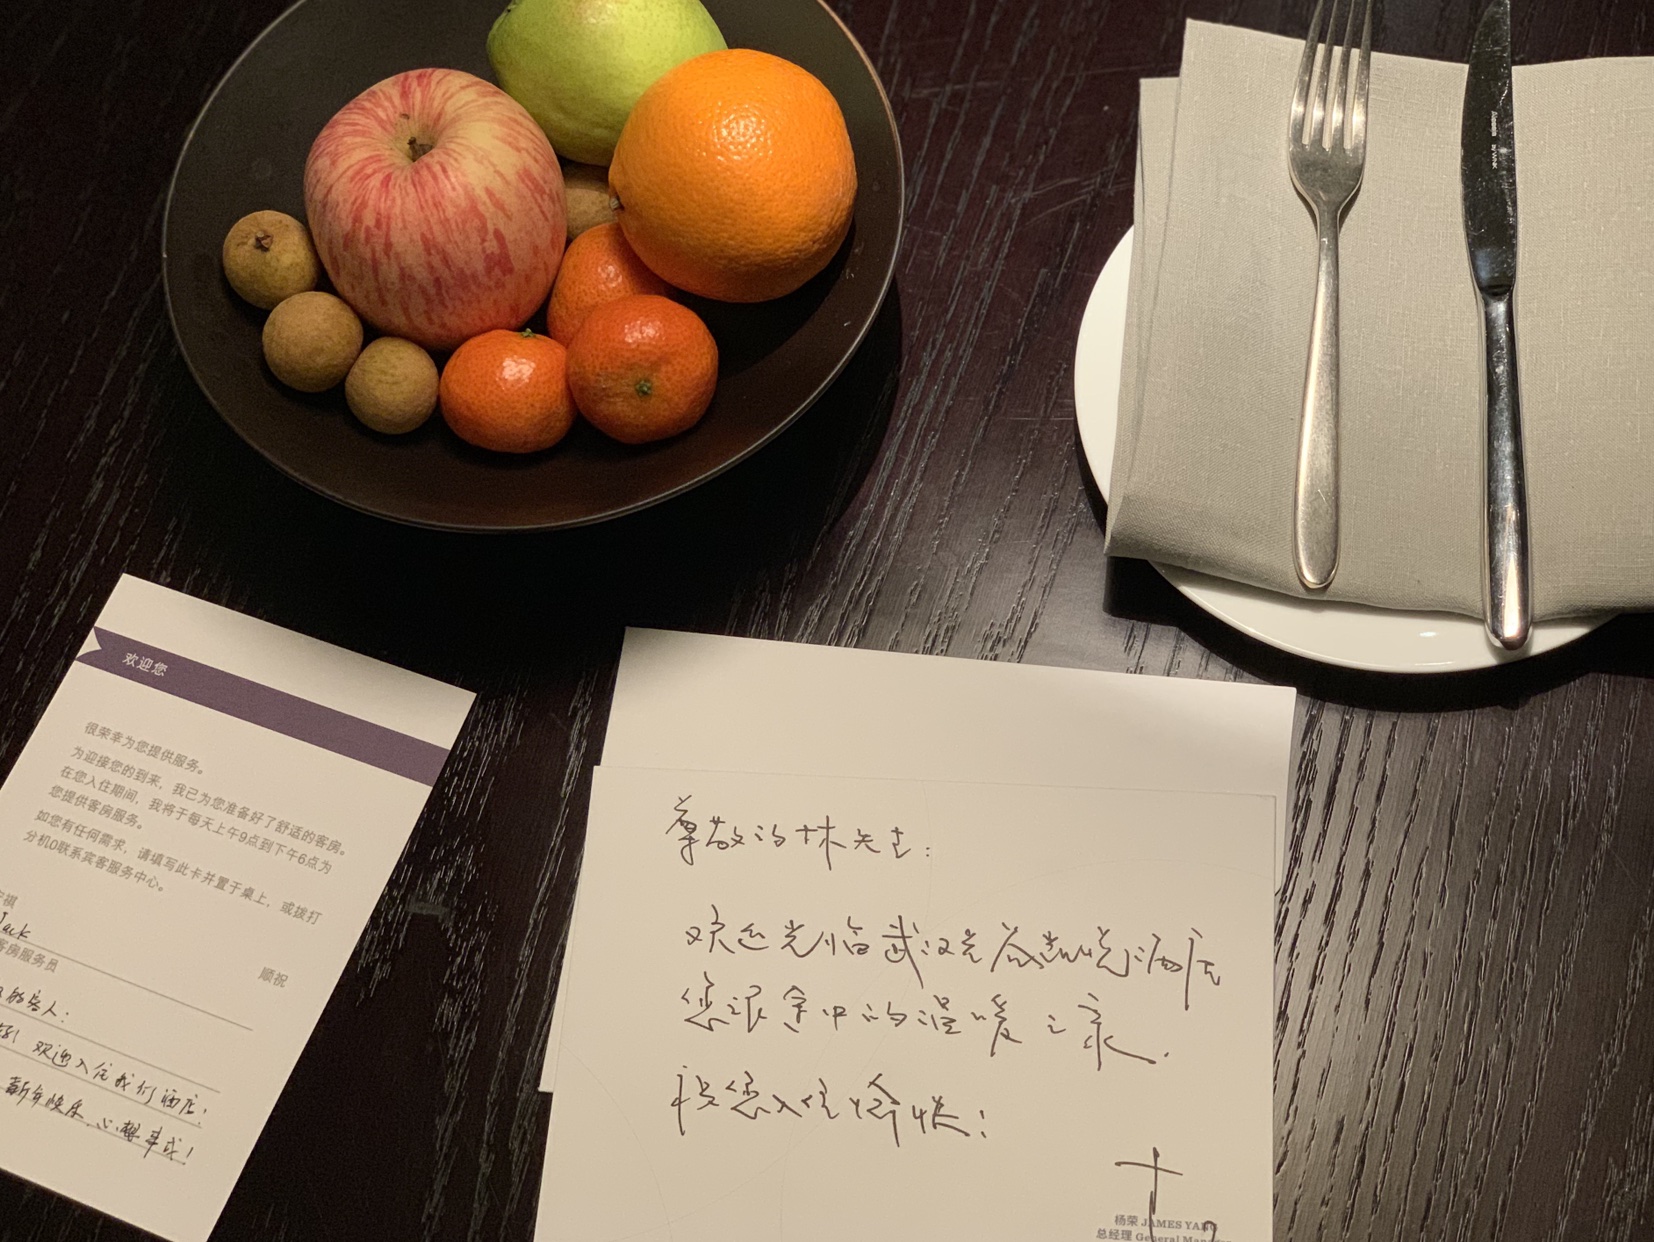 欢迎您
很荣幸为您提供服务。
为迎接您的到来，我已为您准备好了舒适的客房。
在您入住期间，我将于每天上午9点到下午6点为
您提供客房服务。
如您有任何需求，请填写此卡并置于桌上，或拨打
分机0联系宾客服务中心。
祺
Jack
客房服务员
顺祝
的客人：
欢迎入住我们酒店！
新年快乐、心想事成！
尊敬的林先生：
欢迎光临武汉光谷凯悦酒店
您旅途中的温暖之家.
祝您入住愉快！
杨荣 JAMES YANG
总经理 General Manager